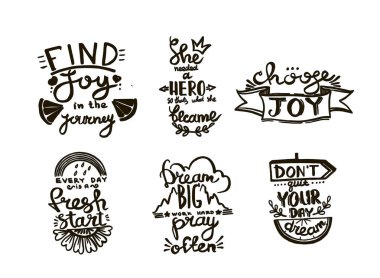 FIND
Joy
in the
journey
She
needed
a
HERO
so that's what she
became
choose
JOY
EVERY DAY
is a
fresh
start
Dream
BIG
WORK HARD
pray
often
DON'T
quit
YOUR
DAY
dream